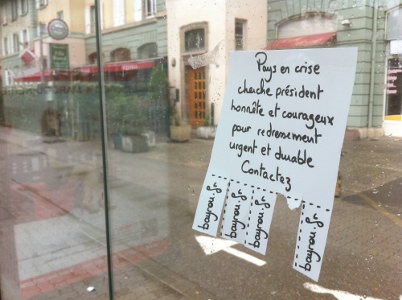 Pays en crise
cherche président
honnête et courageux
pour redressement
urgent et durable
Contactez
bayrou.fr
bayrou.fr
bayrou.fr
bayrou.fr